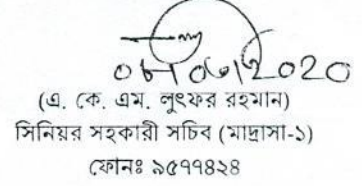 (এ. কে. এম. লুৎফর রহমান)
সিনিয়র সহকারী সচিব (মাদ্রাসা-১)
ফোনঃ ৯৫৭৭৪২৪